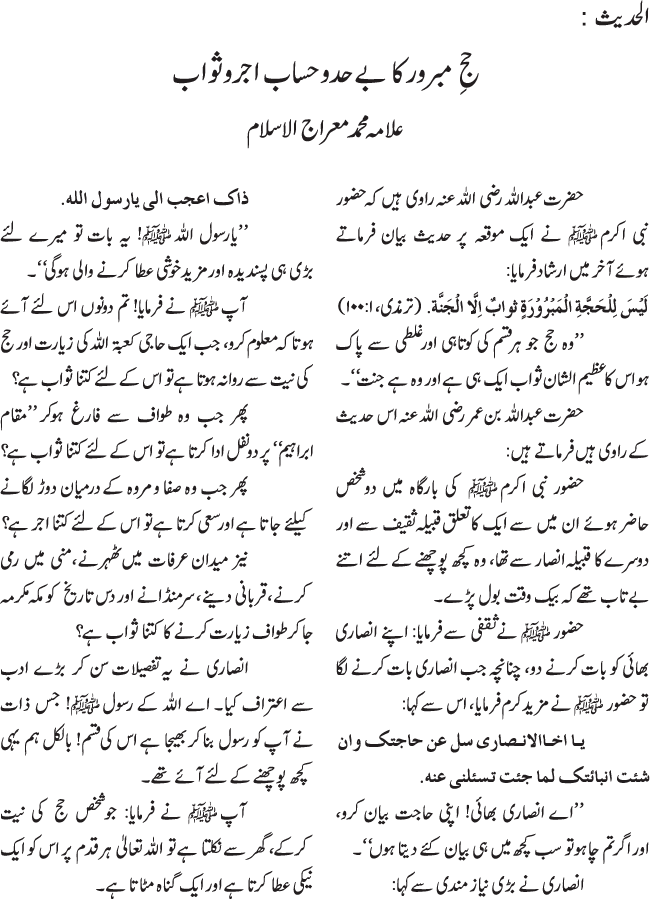 الحدیث :
حجِ مبرور کا بے حدو حساب اجرو ثواب
علامہ محمد معراج الاسلام
حضرت عبداللہ رضی اللہ عنہ راوی ہیں کہ حضور
نبی اکرم ﷺ نے ایک موقعہ پر حدیث بیان فرماتے
ہوئے آخر میں ارشاد فرمایا:
لَيْسَ لِلْحَجَّةِ الْمَبْرُوْرَةِ ثوابٌ اِلَّا الْجَنَّة. (ترمذی، ۱:۱۰۰)
’’وہ حج جو ہر قسم کی کوتاہی اور غلطی سے پاک
ہو اس کا عظیم الشان ثواب ایک ہی ہے اور وہ ہے جنت‘‘۔
حضرت عبداللہ بن عمر رضی اللہ عنہ اس حدیث
کے راوی ہیں فرماتے ہیں:
حضور نبی اکرم ﷺ کی بارگاہ میں دو شخص
حاضر ہوئے ان میں سے ایک کا تعلق قبیلہ ثقیف سے اور
دوسرے کا قبیلہ انصار سے تھا، وہ کچھ پوچھنے کے لئے اتنے
بے تاب تھے کہ بیک وقت بول پڑے۔
حضور ﷺ نے ثقفی سے فرمایا: اپنے انصاری
بھائی کو بات کرنے دو، چنانچہ جب انصاری بات کرنے لگا
تو حضور ﷺ نے مزید کرم فرمایا، اس سے کہا:
یا اخا الانصاری سل عن حاجتک وان
شئت انباتک لما جئت تسئلنی عنه.
’’اے انصاری بھائی! اپنی حاجت بیان کرو،
اور اگر تم چاہو تو سب کچھ میں ہی بیان کئے دیتا ہوں‘‘۔
انصاری نے بڑی نیاز مندی سے کہا:
ذاک اعجب الی یارسول الله.
’’یارسول اللہ ﷺ! یہ بات تو میرے لئے
بڑی ہی پسندیدہ اور مزید خوشی عطا کرنے والی ہوگی‘‘۔
آپ ﷺ نے فرمایا! تم دونوں اس لئے آئے
ہو تا کہ معلوم کرو، جب ایک حاجی کعبۃ اللہ کی زیارت اور حج
کی نیت سے روانہ ہوتا ہے تو اس کے لئے کتنا ثواب ہے؟
پھر جب وہ طواف سے فارغ ہوکر ’’مقام
ابراہیم‘‘ پر دو نفل ادا کرتا ہے تو اس کے لئے کتنا ثواب ہے؟
پھر جب وہ صفا و مروہ کے درمیان دوڑ لگانے
کیلئے جاتا ہے اور سعی کرتا ہے تو اس کے لئے کتنا اجر ہے؟
نیز میدان عرفات میں ٹھہرنے، منی میں رمی
کرنے، قربانی دینے، سرمنڈانے اور دس تاریخ کو مکہ مکرمہ
جا کر طواف زیارت کرنے کا کتنا ثواب ہے؟
انصاری نے یہ تفصیلات سن کر بڑے ادب
سے اعتراف کیا۔ اے اللہ کے رسول ﷺ! جس ذات
نے آپ کو رسول بنا کر بھیجا ہے اس کی قسم! بالکل ہم یہی
کچھ پوچھنے کے لئے آئے تھے۔
آپ ﷺ نے فرمایا: جو شخص حج کی نیت
کرکے، گھر سے نکلتا ہے تو اللہ تعالیٰ ہر قدم پر اس کو ایک
نیکی عطا کرتا ہے اور ایک گناہ مٹاتا ہے۔